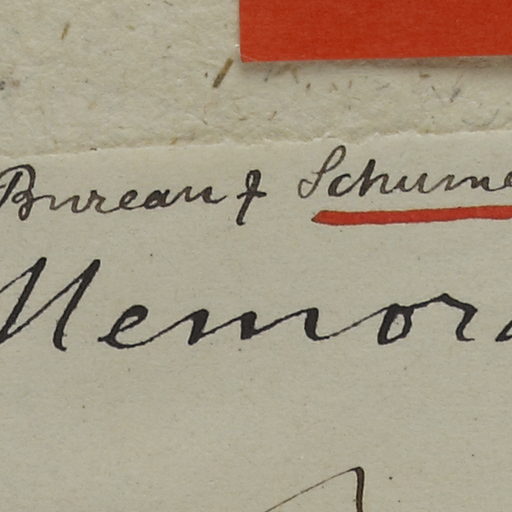 Bureau f Schume
Memora